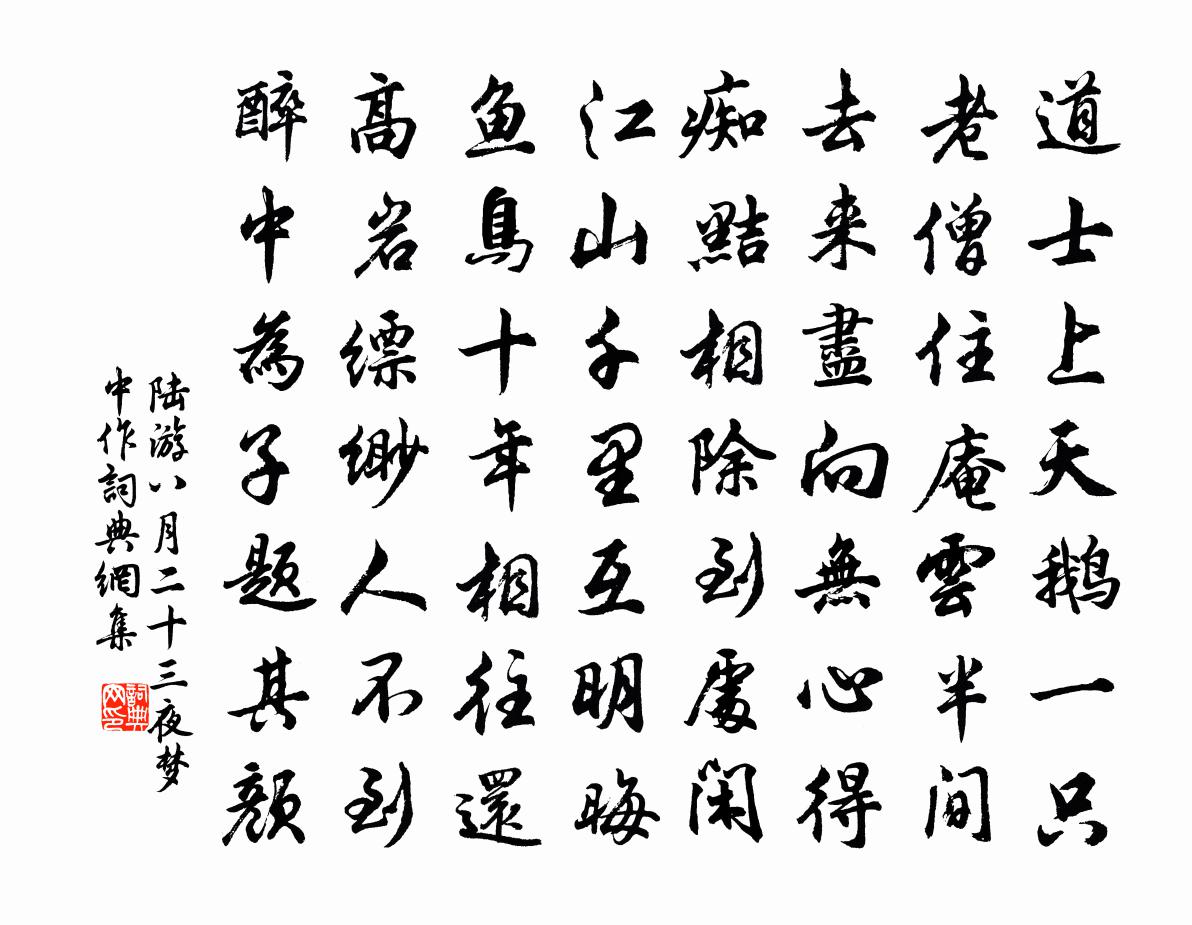 道士上天鹅一只
老僧住庵雲半间
去来盡向無心得
痴黠相除到處闲
江山千里互明晦
鱼鳥十年相往還
高岩缥缈人不到
醉中為子题其颜
陆游八月二十三夜梦
中作詞典網集
詞典
网印